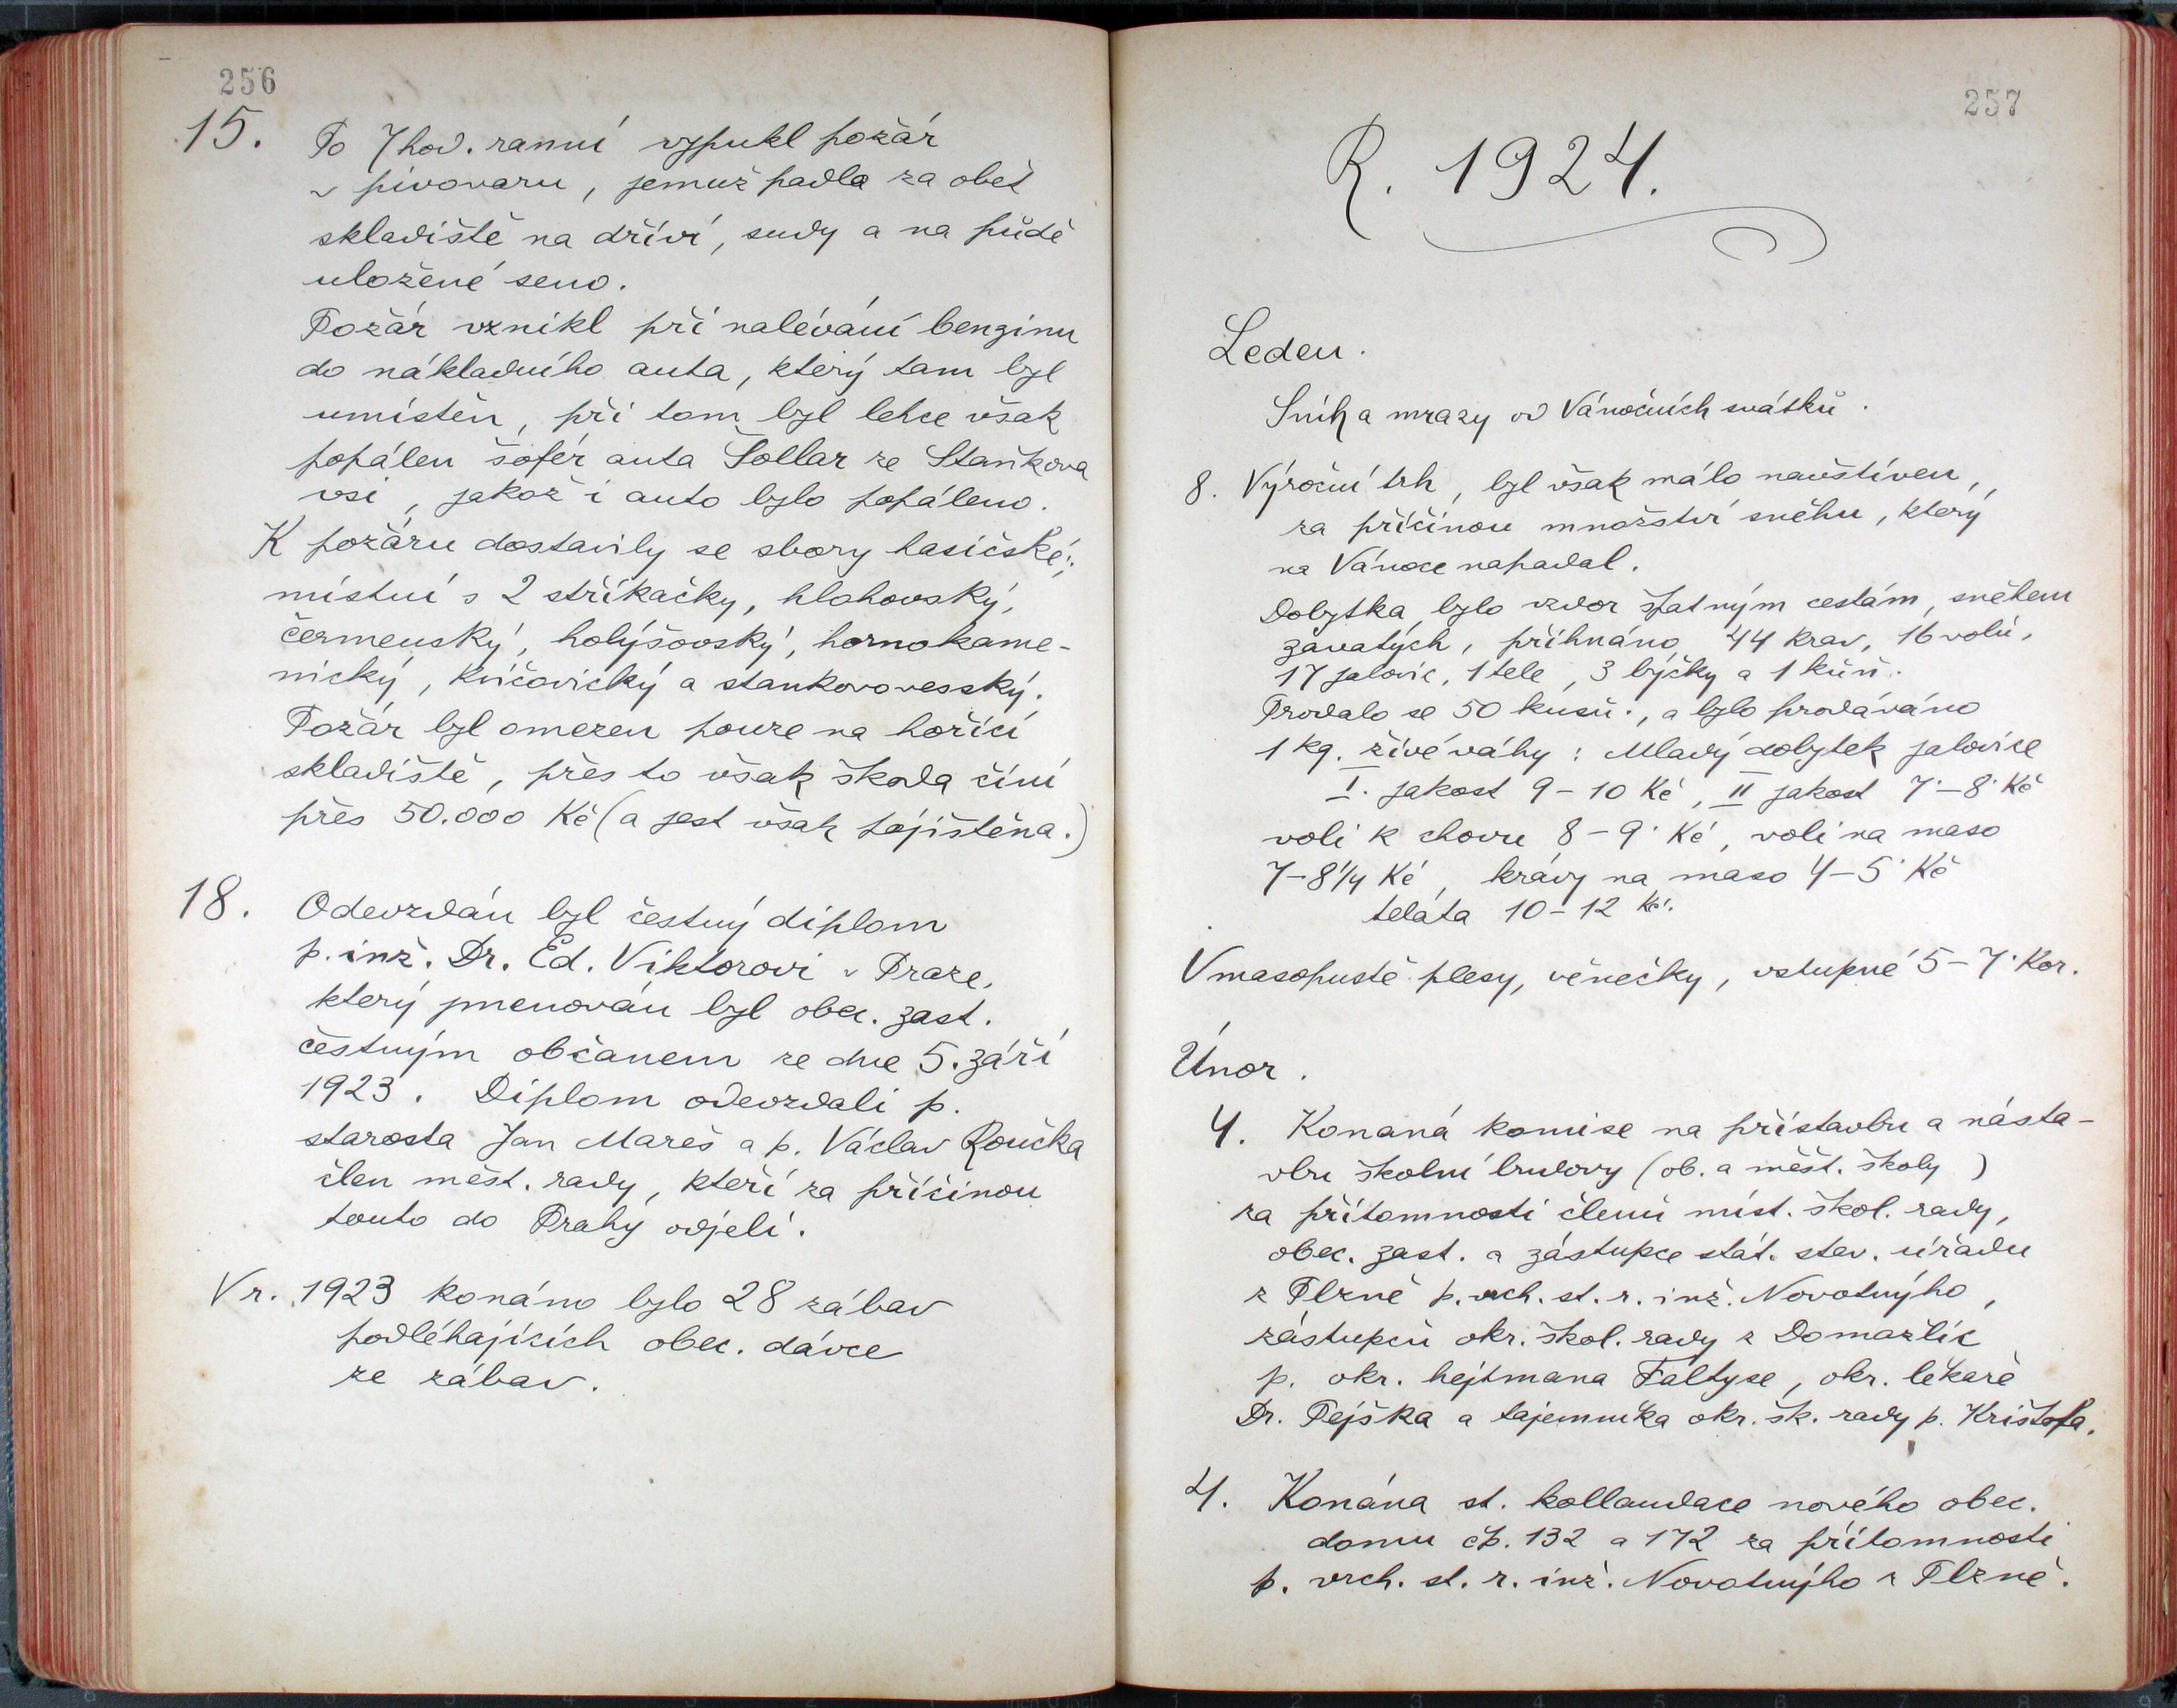 256
15. Po 7 hod. ranní vypukl požár
v pivovaru, jemuž padla za oběť
skladiště na dříví, sudy a na půdě
uložené seno.
Požár vznikl při nalévání benzinu
do nákladního auta, který tam byl
umístěn, při tom byl lehce však
popálen šofér auta Šollar ze Staňkova
vsi, jakož i auto bylo popáleno.
K požáru dostavily se sbory hasičské:
místní s 2 stříkačky, hlohovský,
čermenský, holýšovský, hornokame-
nický, kvíčovický a stankovovesský.
Požár byl omezen pouze na hořící
skladiště, přes to však škoda činí
přes 50.000 Kč (a jest však pojištěna.)
18. Odevzdán byl čestný diplom
p. inž. Dr. Ed. Viktorovi v Praze,
který jmenován byl obec. zast.
čestným občanem ze dne 5. září
1923. Diplom odevzdali p.
starosta Jan Mareš a p. Václav Roučka
člen měst. rady, kteří za příčinou
touto do Prahy odjeli.
V r. 1923 konáno bylo 28 zábav
podléhajících obec. dávce
ze zábav.
257
R. 1924.
Leden.
Sníh a mrazy od Vánočních svátků.
8. Výroční trh, byl však málo navštíven,
za příčinou množství sněhu, který
na Vánoce napadal.
Dobytka bylo vzdor špatným cestám, sněhem
zavatých, přihnáno 44 krav, 16 volů,
17 jalovic, 1 tele, 3 býčky a 1 kůň.
Prodalo se 50 kusů, a bylo prodáváno
1 kg. živé váhy: Mladý dobytek jalovice
I. jakost 9-10 Kč, II jakost 7-8 Kč
voli k chovu 8-9 Kč, voli na maso
7-8 1/4 Kč, krávy na maso 4-5 Kč
telata 10-12 Kč.
V masopustě plesy, věnečky, vstupné 5-7 Kor.
Únor.
4. Konaná komise na přístavbu a násta-
vbu školní budovy (ob. a měšť. školy)
za přítomnosti členů míst. škol. rady,
obec. zast. a zástupce stát. stav. úřadu
z Plzně p. vrch. st. r. inž. Novotnýho,
zástupců okr. škol. rady z Domažlic
p. okr. hejtmana Faltyse, okr. lékaře
Dr. Pejška a tajemníka okr. šk. rady p. Krištofa.
4. Konána st. kollaudace nového obec.
domu čp. 132 a 172 za přítomnosti
p. vrch. st. r. inž. Novotnýho z Plzně.